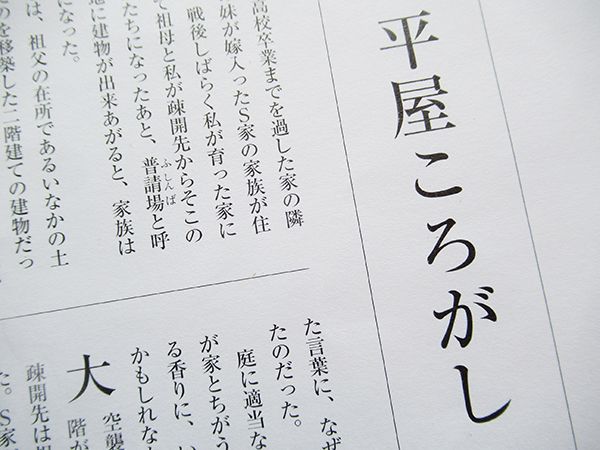 平屋ころがし
高校卒業までを過した家の隣
妹が嫁入ったS家の家族が住
戦後しばらく私が育った家に
て祖母と私が疎開先からそこの
たちになったあと、普請場と呼
ふしんば
地に建物が出来あがると、家族は
になった。
は、祖父の在所であるいなかの土
のを移築した二階建ての建物だっ
た言葉に、なぜ
たのだった。
庭に適当な
が家とちがう
る香りに、い
かもしれな
大空襲
階が
疎開先は
た。S家